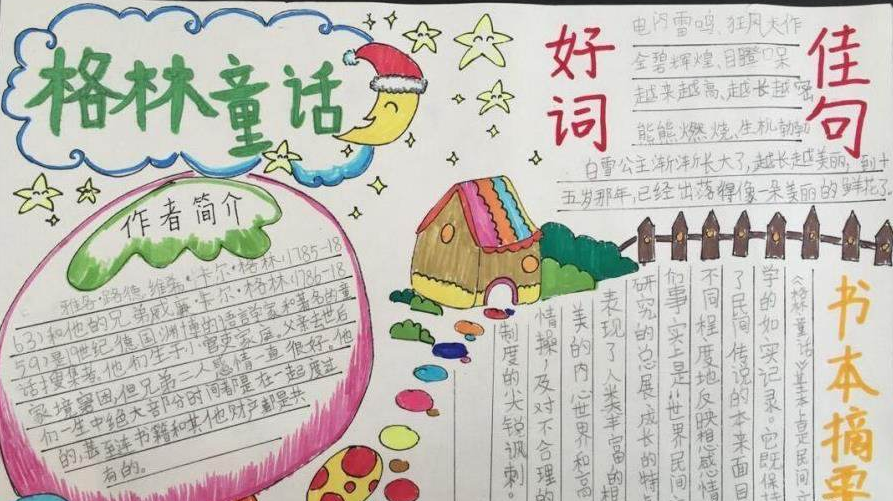 格林童话
作者简介
雅各·路德维希·卡尔·格林(1785-18
63)和他的兄弟威廉·卡尔·格林(1786-18
59)是19世纪德国渊博的语言学家和著名的童
话搜集者。他们生于小官吏家庭。父亲去世后
家境窘困,但兄弟二人感情一直很好。他
们一生中绝大部分时间都是在一起度过
的,甚至连书籍和其他财产都是共
有的。
好词
佳句
电闪雷鸣、狂风大作
金碧辉煌、目瞪口呆
越来越高、越长越密
熊熊燃烧、生机勃勃
白雪公主渐渐长大了,越长越美丽,到十
五岁那年,已经出落得像一朵美丽的鲜花了
书本摘要
《格林童话》基本上是民间
学的如实记录。它既保
了民间传说的本来面目
不同程度地反映思想感情
们事实上是“世界民间
研究的总展成长的特
表现了人类丰富的相
美的内心世界和高
情操,及对不合理的
制度的尖锐讽刺。